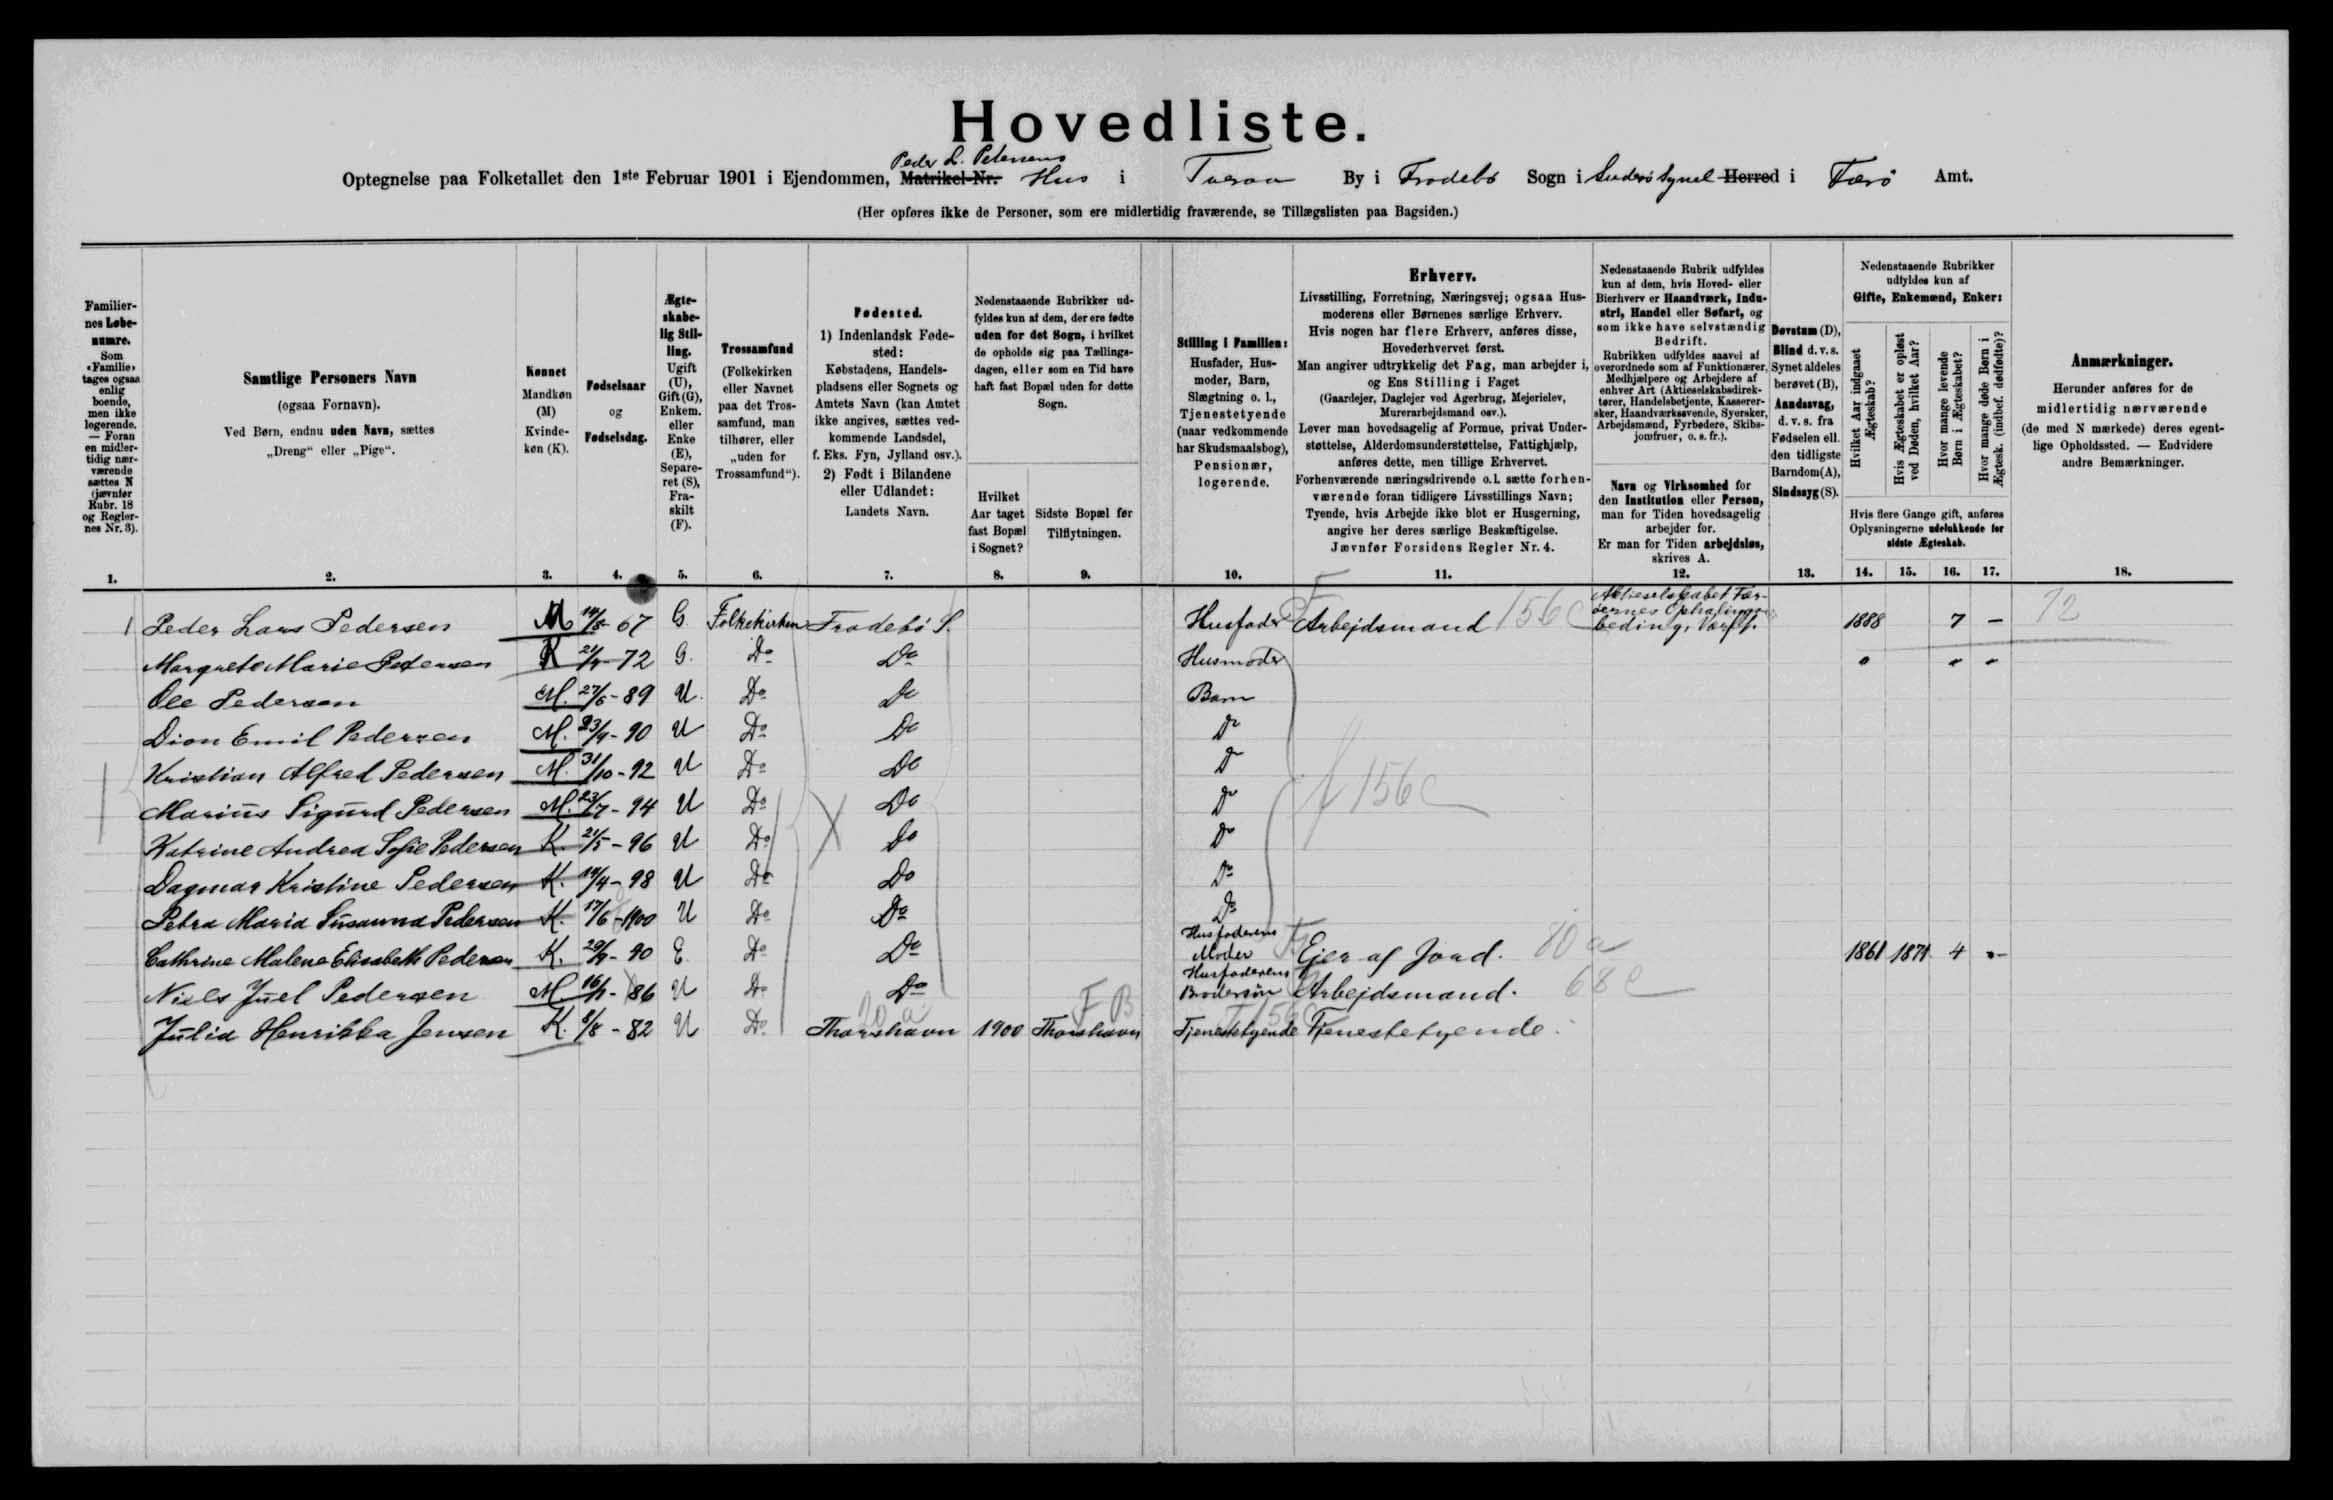 Hovedliste.
Peder L. Petersens
Optegnelse paa Folketallet den 1ste Februar 1901 i Ejendommen, Matrikel-Nr. Hus i Tveraa By i Frodebö Sogn i Suderö Syssel Herred i Færö Amt.
(Her opføres ikke de Personer, som ere midlertidig fraværende, se Tillægslisten paa Bagsiden.)
Familier-
nes Løbe-
numre.
Som
«Familie»
tages ogsaa
enlig
boende,
men ikke
logerende.
— Foran
en midler-
tidig nær-
værende
sættes N
(jævnfør
Rubr. 18
og Regler-
nes Nr. 3).
1.
Samtlige Personers Navn
(ogsaa Fornavn).
Ved Børn, endnu uden Navn, sættes
„Dreng“ eller „Pige“.
2.
Kønnet
Mandkøn
(M)
Kvinde-
køn (K).
3.
Fødselsaar
og
Fødselsdag.
4.
Ægte-
skabe-
lig Stil-
ling.
Ugift
(U),
Gift (G),
Enkem.
eller
Enke
(E),
Separe-
ret (S),
Fra-
skilt
(F).
5.
Trossamfund
(Folkekirken
eller Navnet
paa det Tros-
samfund, man
tilhører, eller
„uden for
Trossamfund“).
6.
Fødested.
1) Indenlandsk Føde-
sted:
Købstadens, Handels-
pladsens eller Sognets og
Amtets Navn (kan Amtet
ikke angives, sættes ved-
kommende Landsdel,
f. Eks. Fyn, Jylland osv.).
2) Født i Bilandene
eller Udlandet:
Landets Navn.
7.
Nedenstaaende Rubrikker ud-
fyldes kun af dem, der ere fødte
uden for det Sogn, i hvilket
de opholde sig paa Tællings-
dagen, eller som en Tid have
haft fast Bopæl uden for dette
Sogn.
Hvilket
Aar taget
fast Bopæl
i Sognet?
8.
Sidste Bopæl før
Tilflytningen.
9.
Stilling i Familien:
Husfader, Hus-
moder, Barn,
Slægtning o. l.,
Tjenestetyende
(naar vedkommende
har Skudsmaalsbog),
Pensionær,
logerende.
10.
Erhverv.
Livsstilling, Forretning, Næringsvej; ogsaa Hus-
moderens eller Børnenes særlige Erhverv.
Hvis nogen har flere Erhverv, anføres disse,
Hovederhvervet først.
Man angiver udtrykkelig det Fag, man arbejder i,
og Ens Stilling i Faget
(Gaardejer, Daglejer ved Agerbrug, Mejerielev,
Murerarbejdsmand osv.).
Lever man hovedsagelig af Formue, privat Under-
støttelse, Alderdomsunderstøttelse, Fattighjælp,
anføres dette, men tillige Erhvervet.
Forhenværende næringsdrivende o.l. sætte forhen-
værende foran tidligere Livsstillings Navn;
Tyende, hvis Arbejde ikke blot er Husgerning,
angive her deres særlige Beskæftigelse.
Jævnfør Forsidens Regler Nr. 4.
11.
Nedenstaaende Rubrik udfyldes
kun af dem, hvis Hoved- eller
Bierhverv er Haandværk, Indu-
stri, Handel eller Søfart, og
som ikke have selvstændig
Bedrift.
Rubrikken udfyldes saavel af
overordnede som af Funktionærer,
Medhjælpere og Arbejdere af
enhver Art (Aktieselskabsdirek-
tører, Handelsbetjente, Kasserer-
sker, Haandværkssvende, Syersker,
Arbejdsmænd, Fyrbødere, Skibs-
jomfruer, o. s. fr.).
Navn og Virksomhed for
den Institution eller Person,
man for Tiden hovedsagelig
arbejder for.
Er man for Tiden arbejdsløs,
skrives A.
12.
Døvstum (D),
Blind d. v. s.
Synet aldeles
berøvet (B),
Aandssvag,
d. v. s. fra
Fødselen ell.
den tidligste
Barndom (A),
Sindssyg (S).
13.
Nedenstaaende Rubrikker
udfyldes kun af
Gifte, Enkemænd, Enker:
Hvilket Aar indgaaet
Ægteskab?
Hvis Ægteskabet er opløst
ved Døden, hvilket Aar?
Hvor mange levende
Børn i Ægteskabet?
Hvor mange døde Børn i
Ægtesk. (indbef. dødfødte)?
Hvis flere Gange gift, anføres
Oplysningerne udelukkende for
sidste Ægteskab.
14. 15. 16. 17.
Anmærkninger.
Herunder anføres for de
midlertidig nærværende
(de med N mærkede) deres egent-
lige Opholdssted. — Endvidere
andre Bemærkninger.
18.
1 Peder Lars Pedersen M 14/8 67 G. Folkekirken Frodebö S. Husfader Arbejdsmand 156 c Aktieselskabet Fær-
öernes Ophalings-
beding, Værft. 1888 7 – 12
Margrete Marie Pedersen K 21/4 72 G. Do Do Husmoder " " "
Ole Pedersen M. 27/6 - 89 U. Do Do Barn
Dion Emil Pedersen M. 23/9 - 90 U Do Do Do
Kristian Alfred Pedersen M. 31/10 - 92 U Do Do Do
Marius Sigurd Pedersen M. 23/7 - 94 U Do Do Do f 156 c
Katrine Andrea Sofie Pedersen K. 21/5 - 96 U Do Do Do
Dagmar Kristine Pedersen K. 14/4 - 98 U Do Do Do
Petra Maria Susanna Pedersen K. 17/6 - 1900 U Do Do Do
Cathrine Malene Elisabeth Pedersen K. 29/9 - 40 E. Do Do Husfaderens
Moder Ejer af Jord. 80 a 1861 1871 4 –
Niels Juel Pedersen M 16/1 - 86 U Do Do Husfaderens
Brodersön Arbejdsmand. 68 c
20 a F B
Julia Henrikka Jensen K. 8/8 - 82 U Do Thorshavn 1900 Thorshavn Tjenestetyende Tjenestetyende.